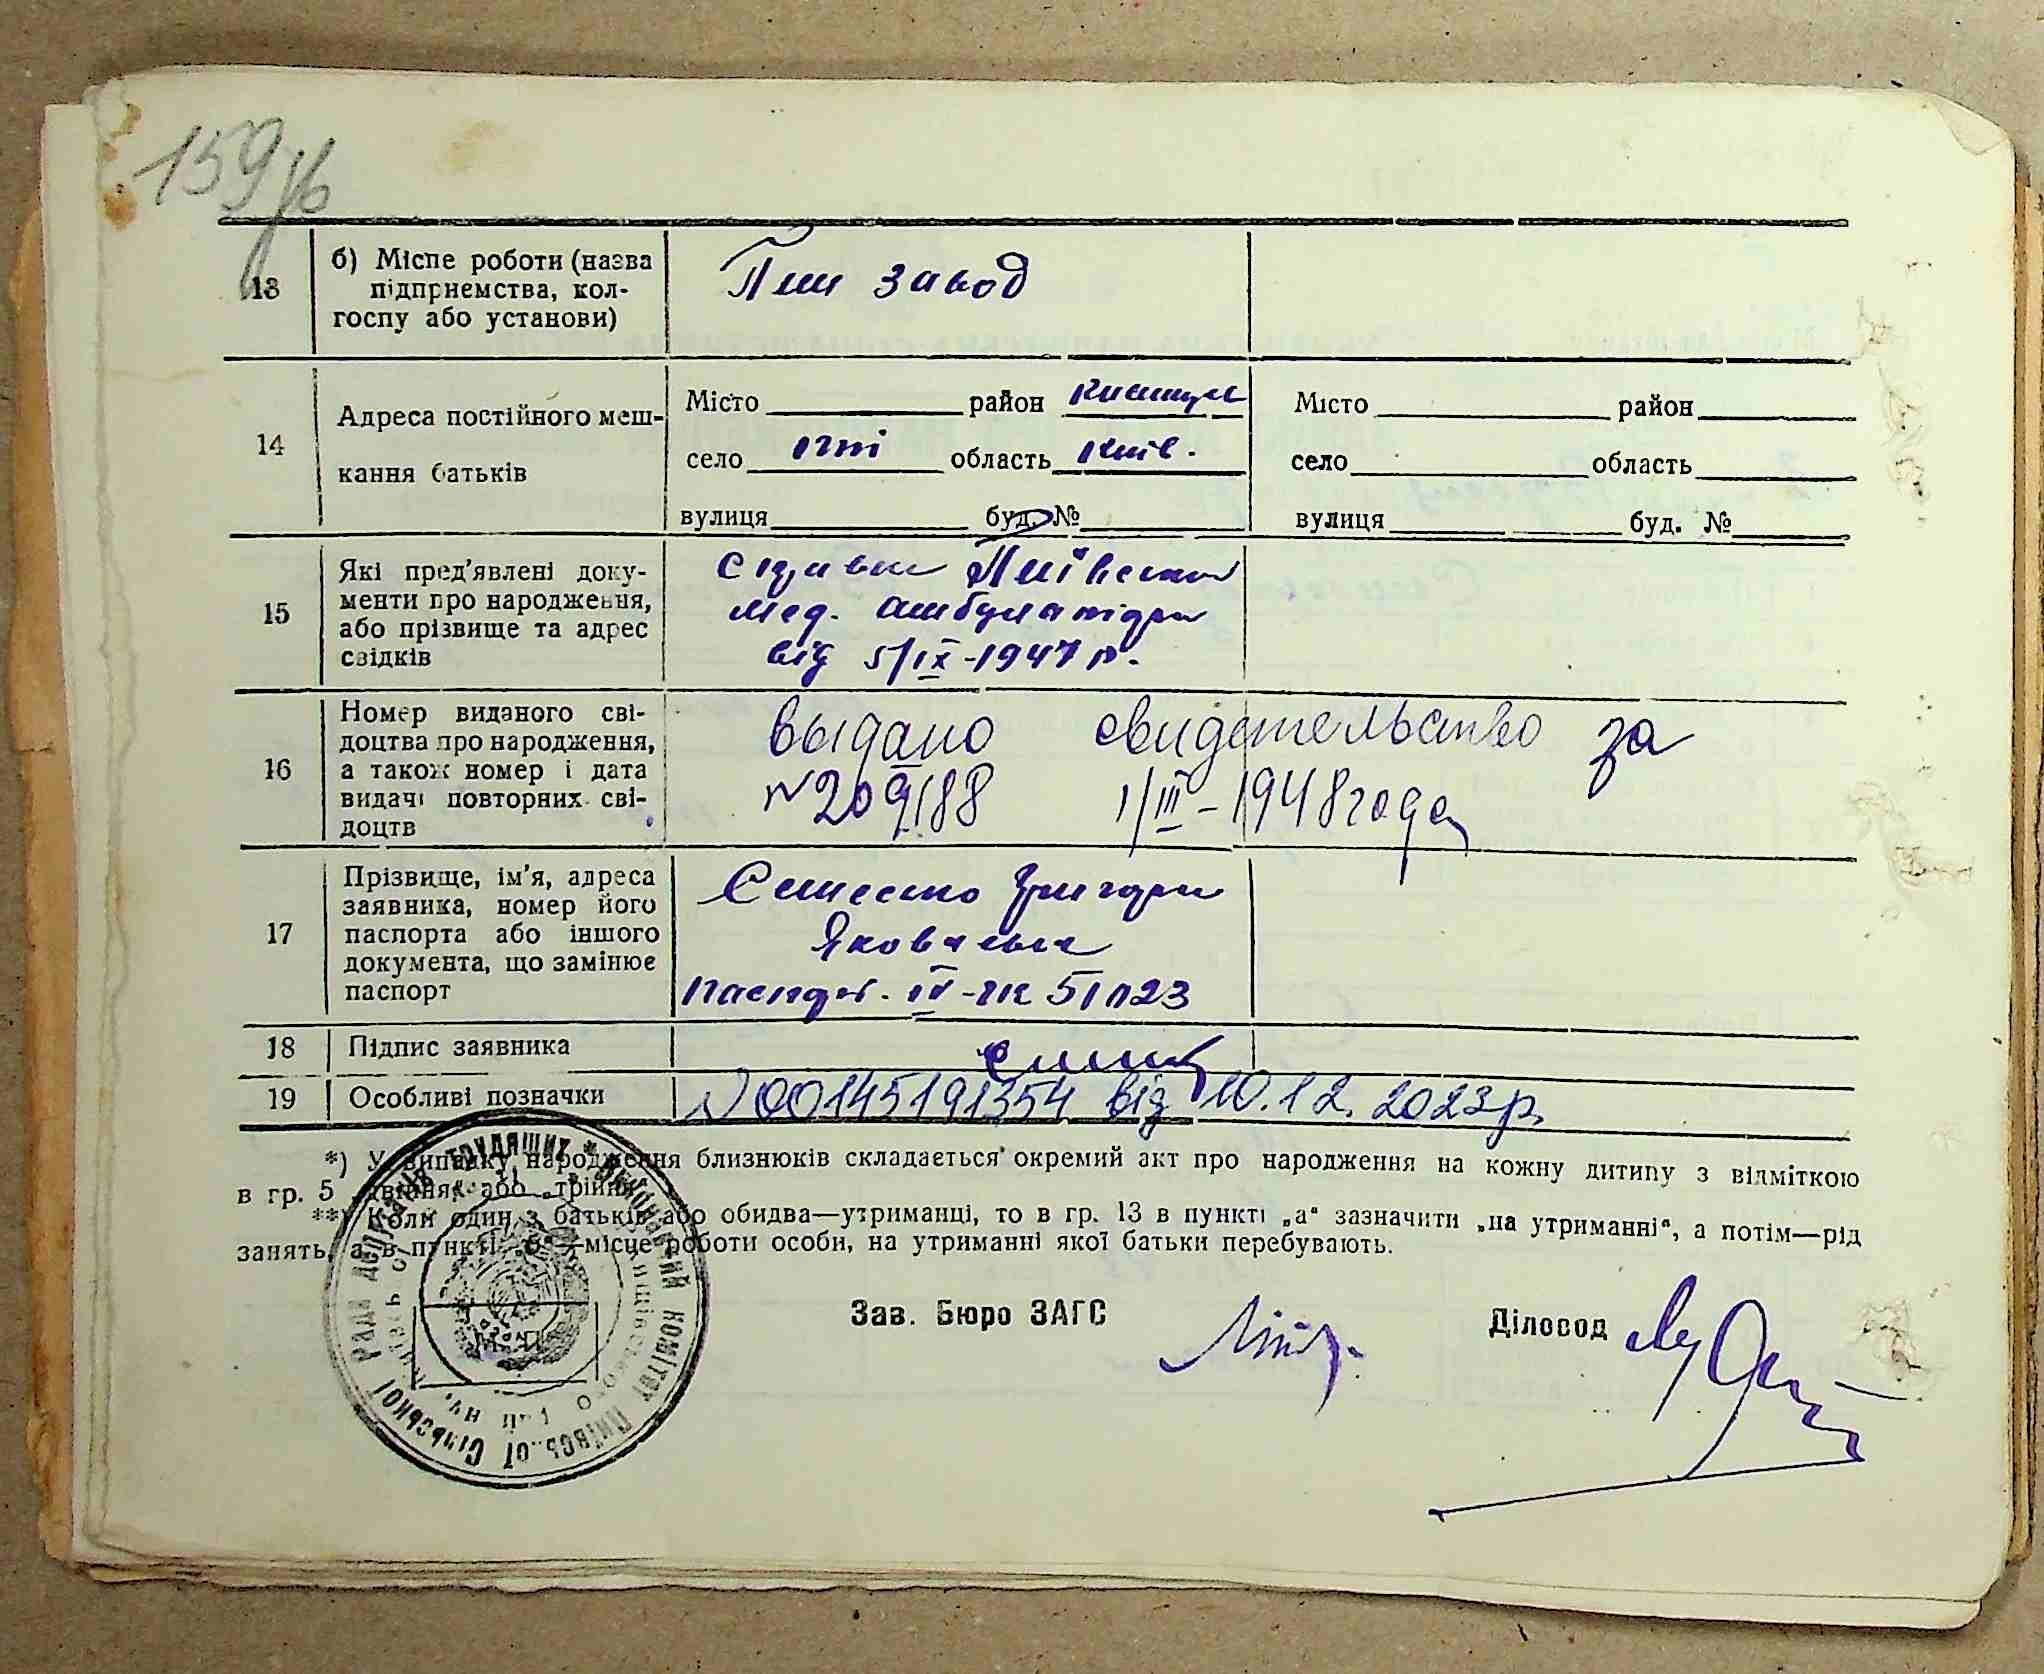 159
13
б) Місце роботи (назва
підприємства, кол-
госпу або установи)
завод
14
Адреса постійного меш-
кання батьків
Місто район
село область Київ.
вулиця буд. №
Місто район
село область
вулиця буд. №
15
Які пред'явлені доку-
менти про народження,
або прізвище та адрес
свідків
мед. амбулаторія
від 5/IX-1947 р.
16
Номер виданого сві-
доцтва про народження,
а також номер і дата
видачі повторних сві-
доцтв
выдано свидетельство за
№ 209188 1/III-1948 года
17
Прізвище, ім'я, адреса
заявника, номер його
паспорта або іншого
документа, що замінює
паспорт
Григори
Яковлевич
Паспорт. IV-
18
Підпис заявника
19
Особливі позначки
№ 00145191354 від 10.12.2023р.
*) У випадку народження близнюків складається окремий акт про народження на кожну дитину з відміткою
в гр. 5 „двійня" або „трійня"
**) Коли один з батьків або обидва—утриманці, то в гр. 13 в пункті „а" зазначити „на утриманні", а потім—рід
занять, а в пункті „б"—місце роботи особи, на утриманні якої батьки перебувають.
Зав. Бюро ЗАГС
Діловод